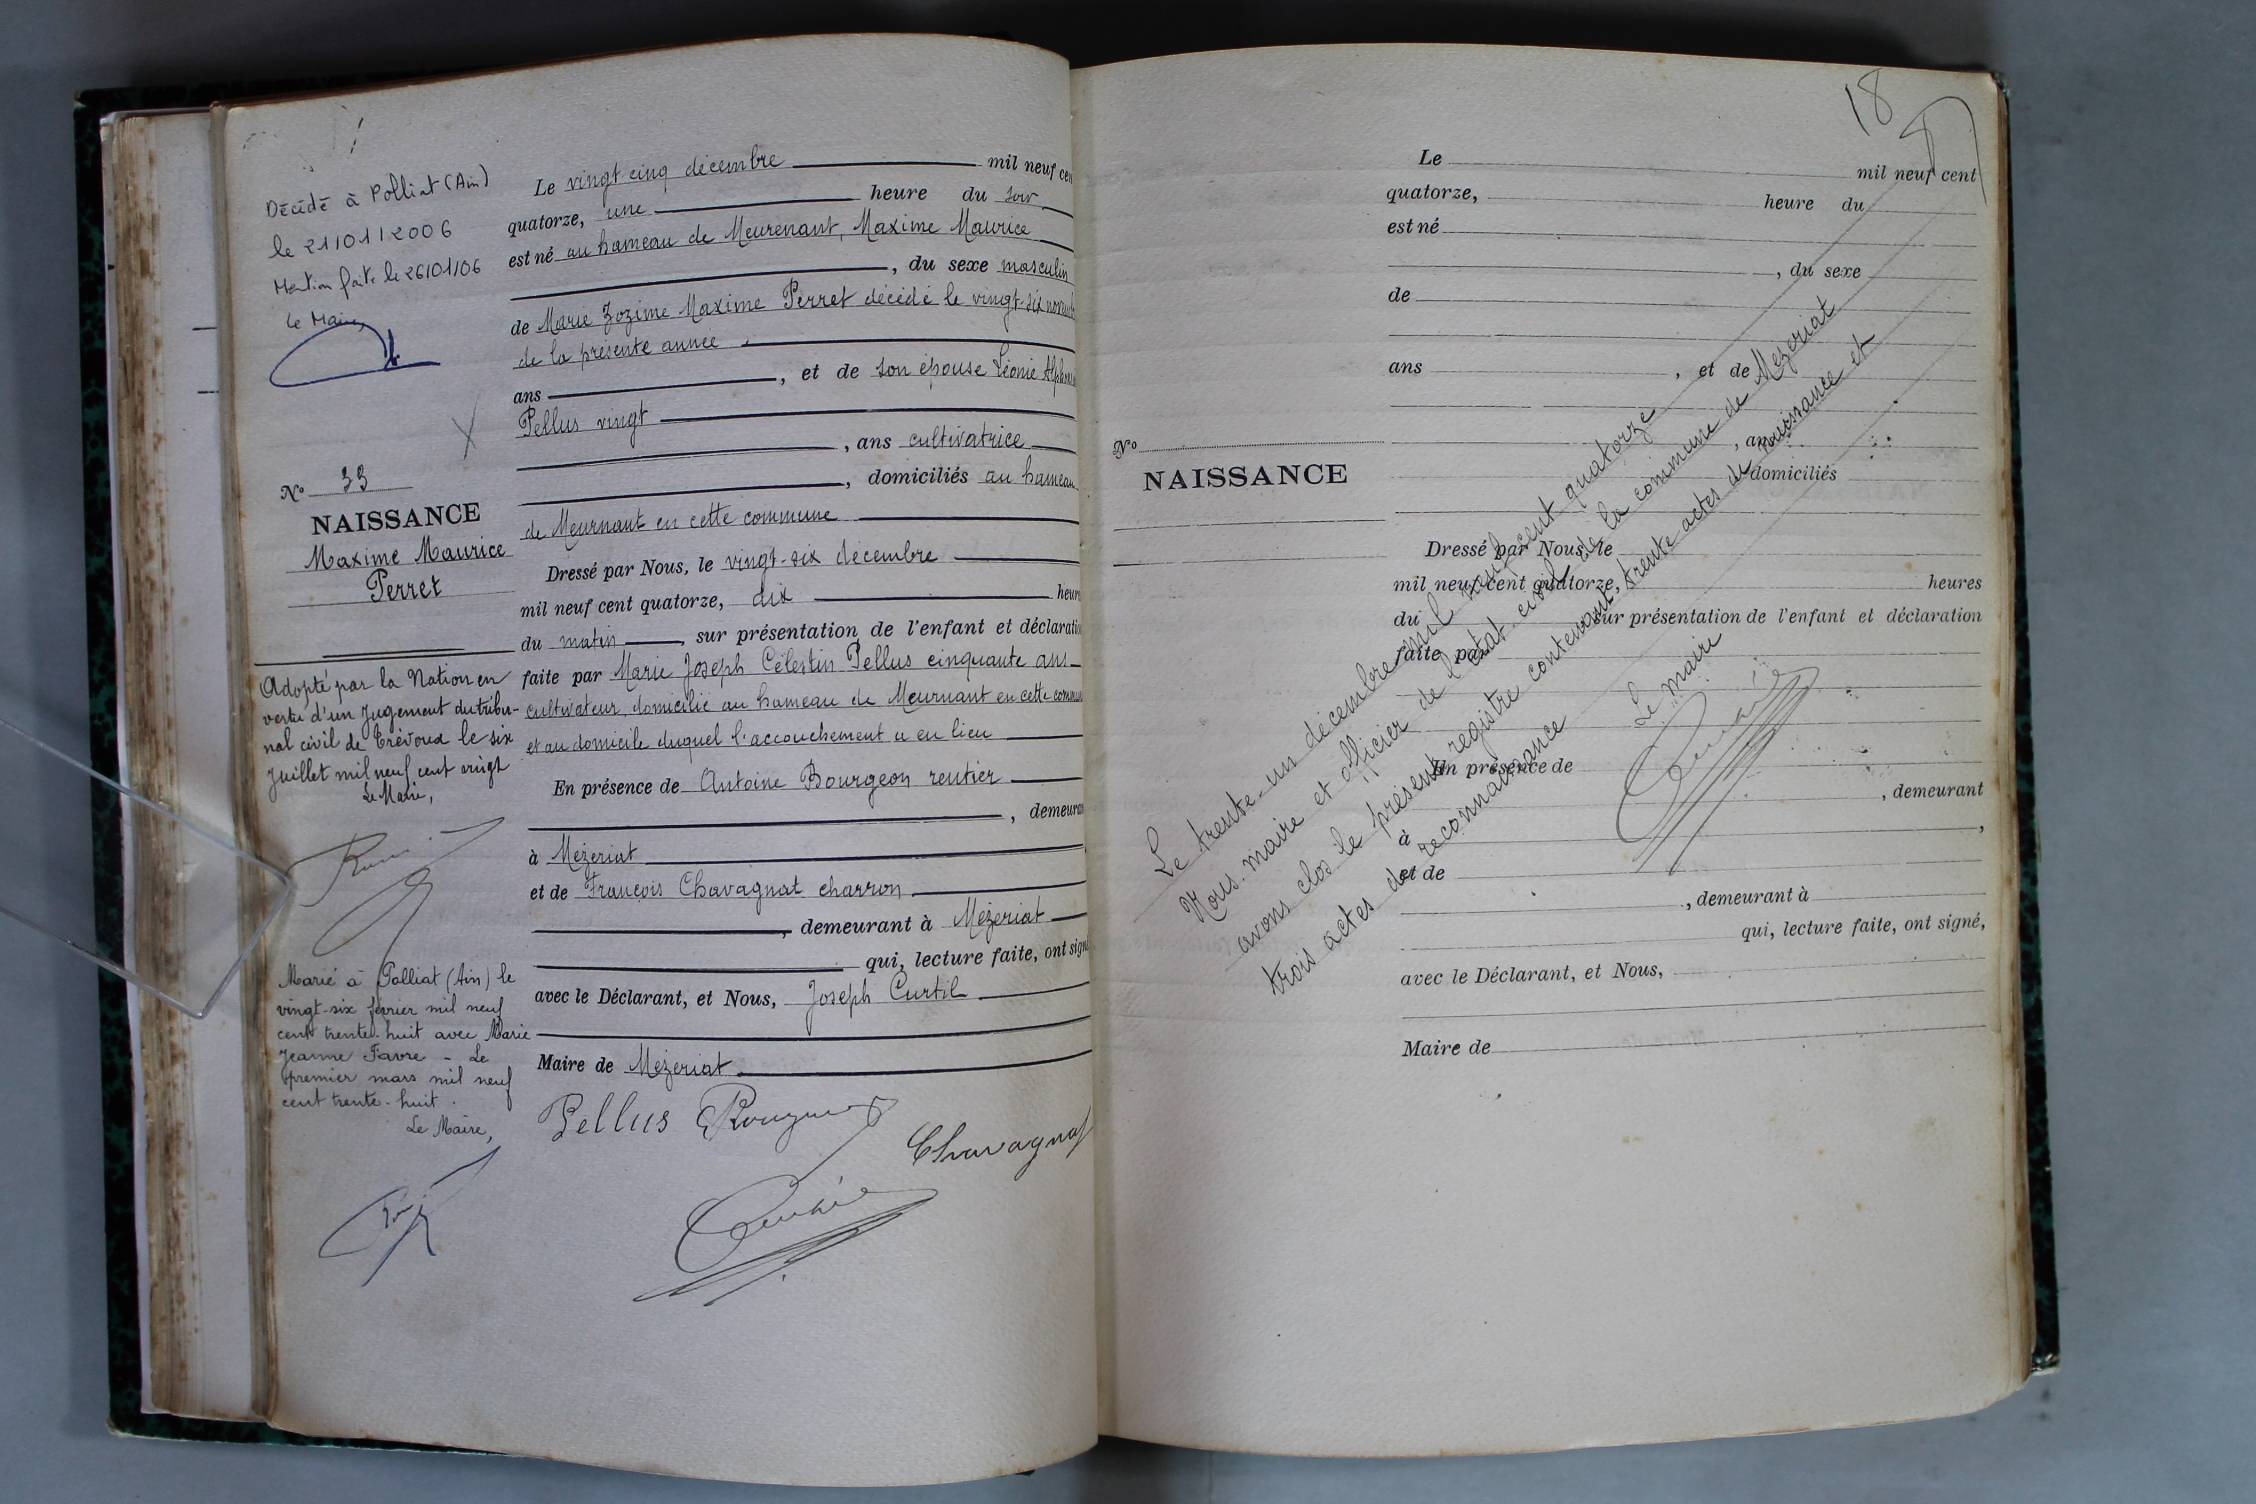 Décédé à Polliat (Ain)
le 21/01/2006
Mention faite le 26/01/06
Le Maire,
N° 33
NAISSANCE
Maxime Maurice
Perret
Adopté par la Nation en
vertu d'un Jugement du tribu-
nal civil de Trévoux le six
Juillet mil neuf cent vingt
Le Maire,
Marié à Polliat (Ain) le
vingt-six février mil neuf
cent trente-huit avec Marie
Jeanne Favre - Le
premier mars mil neuf
cent trente-huit.
Le Maire,
Le vingt cinq décembre mil neuf cen
quatorze, une heure du soir
est né au hameau de Meurenant, Maxime Maurice
, du sexe masculin
de Marie Zozime Maxime Perret décédé le vingt-six novem
de la présente année
ans , et de son épouse Léonie Alphon
Pellus vingt
, ans cultivatrice
, domiciliés au hameau
de Meurnant en cette commune
Dressé par Nous, le vingt-six décembre
mil neuf cent quatorze, dix heure
du matin , sur présentation de l'enfant et déclaratio
faite par Marie Joseph Célestin Pellus cinquante ans
cultivateur, domicilié au hameau de Meurnant en cette commu
et au domicile duquel l'accouchement a eu lieu
En présence de Antoine Bourgeon rentier
, demeura
à Mézeriat
et de François Chavagnat charron
, demeurant à Mézeriat
qui, lecture faite, ont sign
avec le Déclarant, et Nous, Joseph Curtil
Maire de Mézeriat
Pellus
Chavagnat
18
Le mil neuf cent
quatorze, heure du
est né
, du sexe
de
ans , et de
, ans
N°
NAISSANCE
domiciliés
Dressé par Nous, le
mil neuf cent quatorze, heures
du sur présentation de l'enfant et déclaration
faite par
En présence de
, demeurant
à ,
et de
, demeurant à
qui, lecture faite, ont signé,
avec le Déclarant, et Nous,
Maire de
Le trente-un décembre mil neuf cent quatorze
Nous maire et officier de l'état civil de la commune de Mézeriat
avons clos le présent registre contenant trente actes de naissance et
trois actes de reconnaissance
Le maire